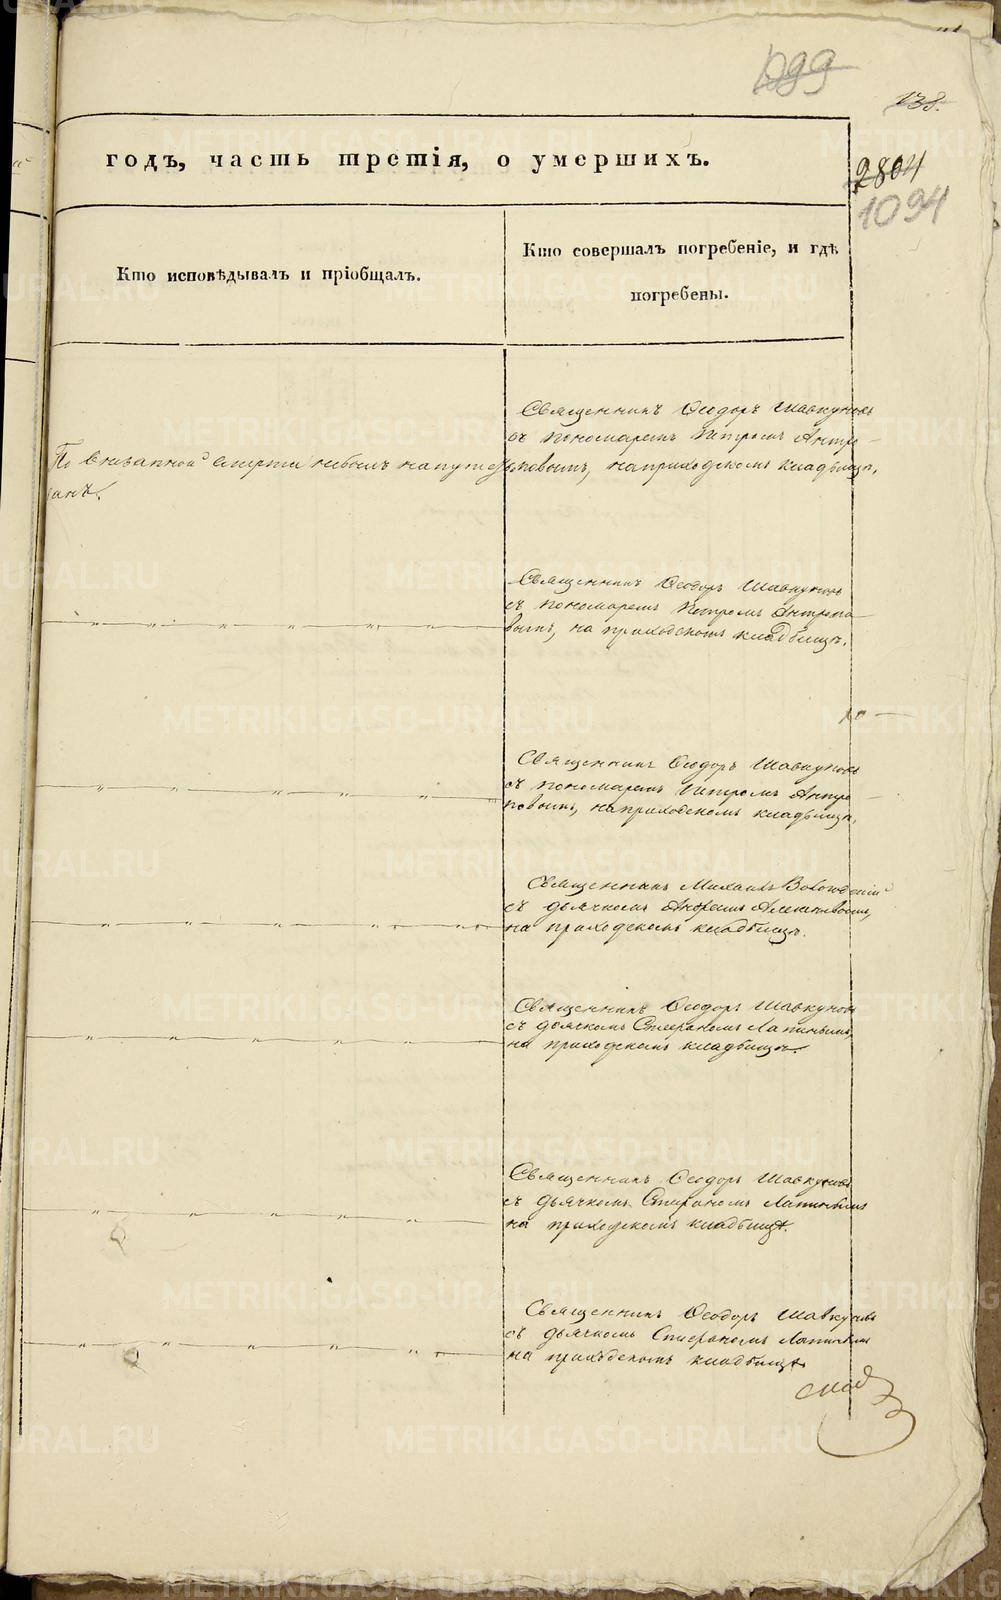 1099
138.
2804
1094
годъ, часть третія, о умершихъ.
Кто исповѣдывалъ и пріобщалъ.
Кто совершалъ погребеніе, и гдѣ
погребены.
Священникъ Ѳеодоръ Шавкуновъ
съ пономаремъ Петромъ Антро-
повымъ, на приходскомъ кладбищѣ.
По внезапной смерти небылъ напутство
ванъ.
Священникъ Ѳеодоръ Шавкуновъ
съ пономаремъ Петромъ Антропо-
вымъ, на приходскомъ кладбищѣ.
Священникъ Ѳеодоръ Шавкуновъ
съ пономаремъ Петромъ Антро-
повымъ, на приходскомъ кладбищѣ.
Священникъ Михаилъ
съ дьячкомъ Андреемъ
на приходскомъ кладбищѣ.
Священникъ Ѳеодоръ Шавкуновъ
съ дьячкомъ Стефаномъ Лапинымъ,
на приходскомъ кладбищѣ.
Священникъ Ѳеодоръ Шавкуновъ
съ дьячкомъ Стефаномъ Лапинымъ
на приходскомъ кладбищѣ.
Священникъ Ѳеодоръ Шавкуновъ
съ дьячкомъ Стефаномъ Лапинымъ
на приходскомъ кладбищѣ.
METRIKI.GASO-URAL.RU